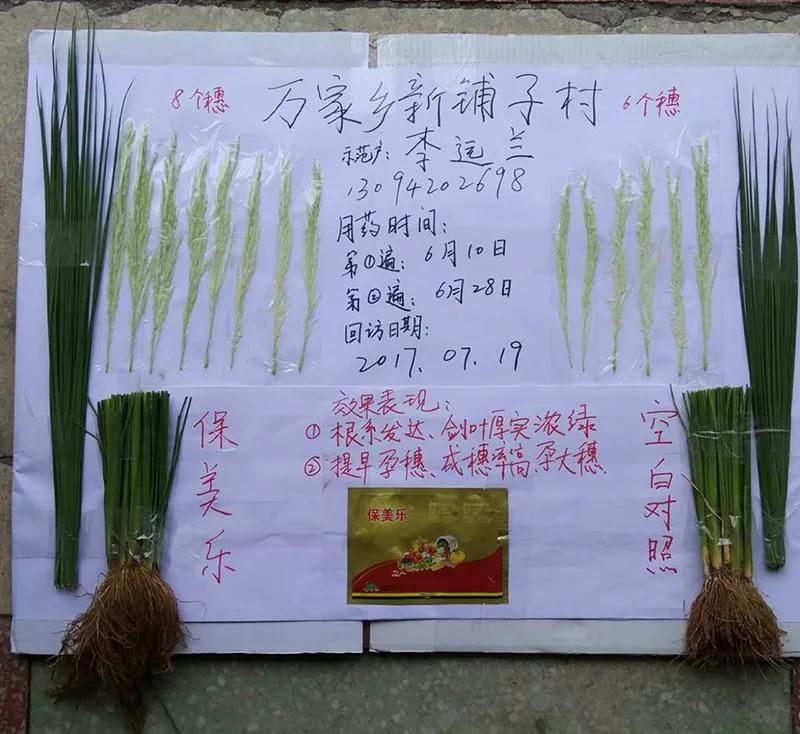 8个穗
万家乡新铺子村
6个穗
示范户: 李远兰
13094202698
用药时间:
第①遍: 6月10日
第②遍: 6月28日
回访日期:
2017.07.19
效果表现:
① 根系发达、剑叶厚实浓绿
② 提早孕穗、成穗率高、孕大穗
保美乐
空白对照
保美乐